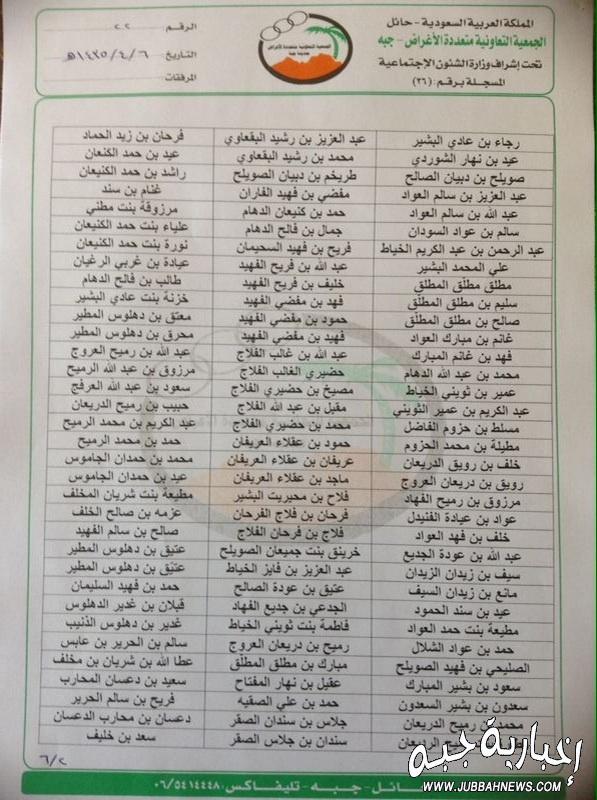 المملكة العربية السعودية - حائل
الجمعية التعاونية متعددة الأغراض - جبه
تحت إشراف وزارة الشئون الإجتماعية
المسجلة برقم : (٢٦)
الرقم : ٢٢
التاريخ : ١٤٣٥/٤/٦هـ
المرفقات :
رجاء بن عادي البشير عبد العزيز بن رشيد البقعاوي فرحان بن زيد الحماد
عيد بن نهار الشوردي محمد بن رشيد البقعاوي عيد بن حمد الكنعان
صويلح بن دبيان الصالح طريخم بن دبيان الصويلح راشد بن حمد الكنيعان
عبد العزيز بن سالم العواد مفضي بن فهيد الفاران غنام بن سند
عبد الله بن سالم العواد حمد بن كنيعان الدهام مرزوقة بنت مطني
سالم بن عواد السودان جمال بن فالح الدهام علياء بنت حمد الكنيعان
عبد الرحمن بن عبد الكريم الخياط فريح بن فهيد السحيمان نورة بنت حمد الكنعان
علي المحمد البشير عبد الله بن فريح الفهيد عيادة بن غربي الرغيان
مطلق مطلق المطلق خليف بن فريح الفهيد طالب بن فالح الدهام
سليم بن مطلق المطلق فهد بن مفضي الفهيد خزنة بنت عادي البشير
صالح بن مطلق المطلق حمود بن مفضي الفهيد معتق بن دهلوس المطير
غانم بن مبارك العواد فهيد بن مفضي الفهيد محرق بن دهلوس المطير
فهد بن غانم المبارك عبد الله بن غالب الفلاج عبد الله بن رميح العروج
محمد بن عبد الله الدهام حضيري الغالب الفلاج مرزوق بن عبد الله الرميح
عمير بن ثويني الخياط مصيخ بن حضيري الفلاج سعود بن عبد الله العرفج
عبد الكريم بن عمير الثويني مقبل بن عبد الله الفلاج حبيب بن رميح الدريعان
مسلط بن حزوم الفاضل محمد بن حضيري الفلاج عبد الكريم بن محمد الرميح
مطيلة بن محمد الحزوم حمود بن عقلاء العريفان حمد بن محمد الرميح
خلف بن رويق الدريعان عريفان بن عقلاء العريفان محمد بن حمدان الجاموس
رويق بن دريعان العروج ماجد بن عقلاء العريفان عيد بن حمدان الجاموس
مرزوق بن رميح الفهاد فلاح بن محيريت البشير مطيعة بنت شريان المخلف
عواد بن عيادة الفنيدل فرحان بن فلاج الفرحان عزمه بن صالح الخلف
خلف بن فهد العواد فلاج بن فرحان الفلاج صالح بن سالم الفهيد
عبد الله بن عودة الجديع خرينق بنت جميعان الصويلح عتيق بن دهلوس المطير
سيف بن زيدان الزيدان عبد العزيز بن فايز الخياط عتيق بن دهلوس المطير
مانع بن زيدان السيف عتيق بن عودة الصالح حمد بن فهيد السليمان
عيد بن سند الحمود الجدعي بن جديع الفهاد قبلان بن غدير الدهلوس
مطيعة بنت حمد العواد فاطمة بنت ثويني الخياط غدير بن دهلوس الذنيب
حمد بن عواد الشلال رميح بن دريعان العروج سالم بن الحرير بن عابس
الصليحي بن فهيد الصويلح مبارك بن مطلق المطلق عطا الله بن شريان بن مخلف
سعود بن بشير المبارك عقيل بن نهار المفتاح سعيد بن دعسان المحارب
سعدون بن بشير السعدون حمد بن علي الصقيه فريح بن سالم الحرير
محمد بن رميح الدريعان جلاس بن سندان الصقر دعسان بن محارب الدعسان
رميح الدريعان سندان بن جلاس الصقر سعد بن خليف
٦/٢
حائل - جبه - تليفاكس : ٠٦/٥٤١٤٤٤٨
إخبارية جبة
WWW.JUBBAHNEWS.COM